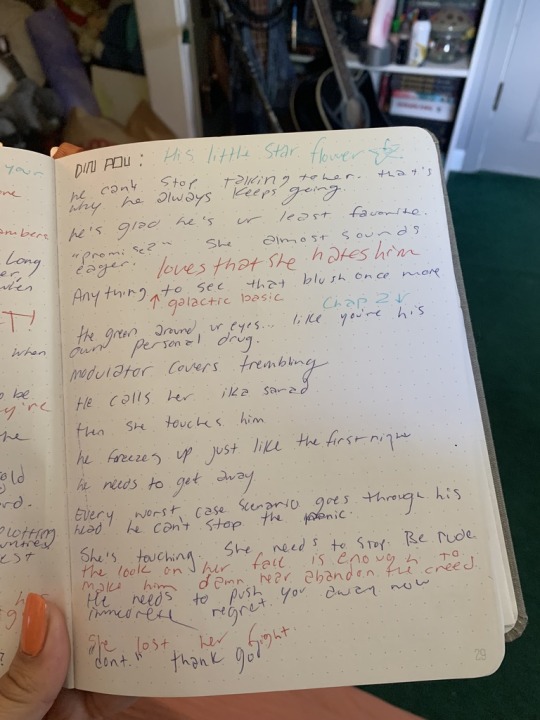 your
ne
ambere
Long
er,
when
ET!
when
o be
ey're
the
old
rd.
plotting
est
DIN POV: His little star flower
he can't stop talking to her. that's
why he always keeps going.
he's glad he's ur least favorite.
"promise?" She almost sounds
eager. loves that she hates him
Anything to see that blush once more
↑ galactic basic Chap 2 ↓
the green around ur eyes... like you're his
own personal drug.
modulator covers trembling
He calls her ika sarad
then she touches him
he freezes up just like the first night
he needs to get away
Every worst case scenario goes through his
head he can't stop the panic.
She's touching. She needs to stop. Be rude.
the look on her face is enough to
make him damn near abandon the creed.
He needs to push you away now
immediate regret.
She lost her fight.
"dont." thank god
29